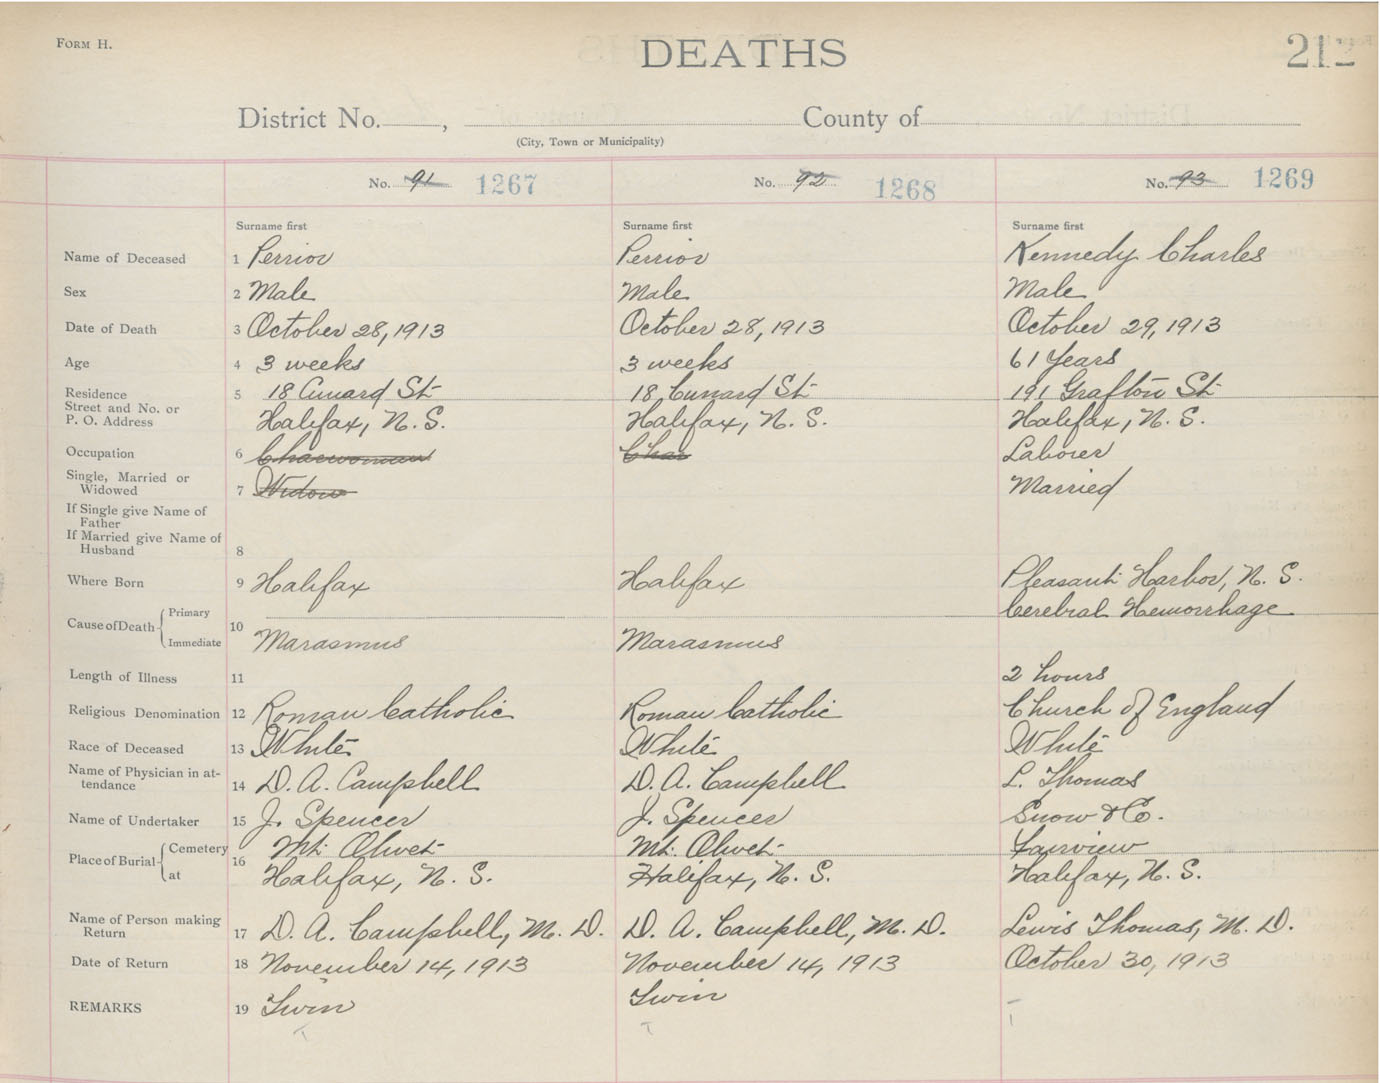 FORM H.
DEATHS
212
District No. , County of
(City, Town or Municipality)
No. 91 1267 No. 92 1268 No. 93 1269
Surname first Surname first Surname first
Name of Deceased 1 Perrior Perrior Kennedy Charles
Sex 2 Male Male Male
Date of Death 3 October 28, 1913 October 28, 1913 October 29, 1913
Age 4 3 weeks 3 weeks 61 Years
Residence 5 18 Cunard St 18 Cunard St 191 Grafton St
Street and No. or
P. O. Address Halifax, N. S. Halifax, N. S. Halifax, N. S.
Occupation 6 Charwoman Char Laborer
Single, Married or
Widowed 7 Widow Married
If Single give Name of
Father
If Married give Name of
Husband 8
Where Born 9 Halifax Halifax Pleasant Harbor, N. S.
Cause of Death Primary Cerebral Hemorrhage
10
Immediate Marasmus Marasmus
Length of Illness 11 2 hours
Religious Denomination 12 Roman Catholic Roman Catholic Church of England
Race of Deceased 13 White White White
Name of Physician in at-
tendance 14 D. A. Campbell D. A. Campbell L. Thomas
Name of Undertaker 15 J. Spencer J. Spencer Snow & Co.
Place of Burial Cemetery 16 Mt. Olivet Mt. Olivet Fairview
at Halifax, N. S. Halifax, N. S. Halifax, N. S.
Name of Person making
Return 17 D. A. Campbell, M. D. D. A. Campbell, M. D. Lewis Thomas, M. D.
Date of Return 18 November 14, 1913 November 14, 1913 October 30, 1913
REMARKS 19 Twin Twin
T T T